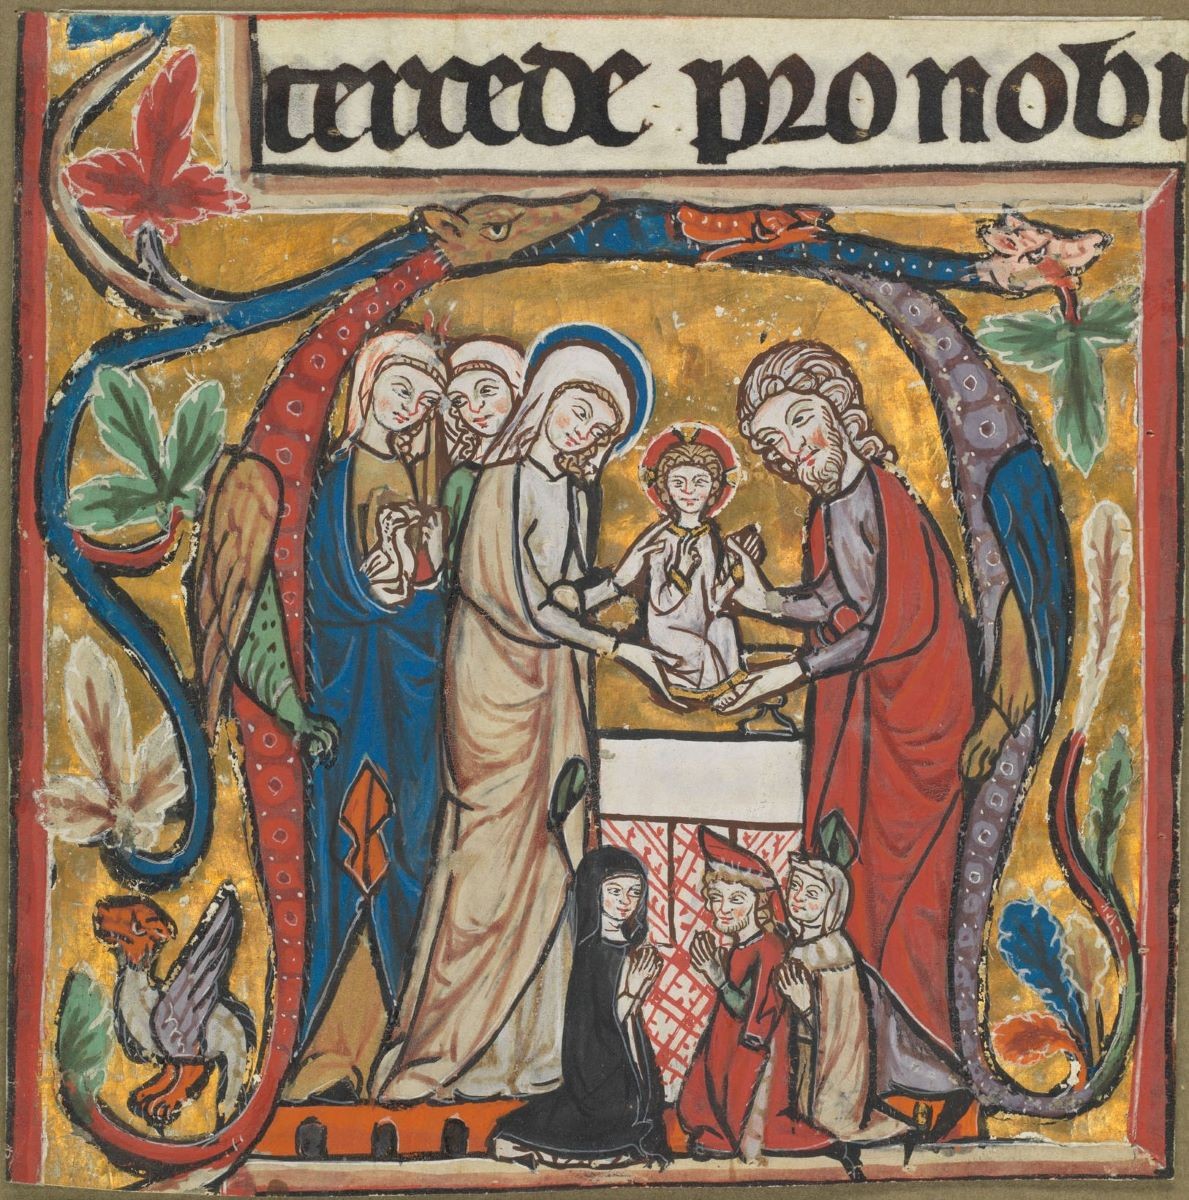 tercede pro nobi